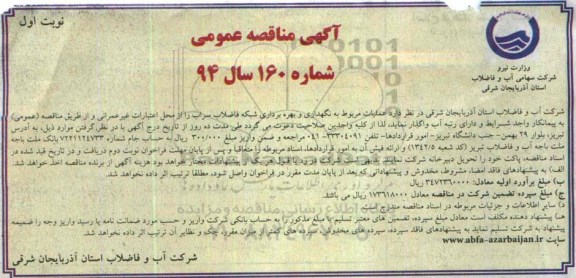 نوبت اول
آگهی مناقصه عمومی
شماره ۱۶۰ سال ۹۴
وزارت نیرو
شرکت سهامی آب و فاضلاب
استان آذربایجان شرقی
شرکت آب و فاضلاب استان آذربایجان شرقی در نظر دارد عملیات مربوط به نگهداری و بهره برداری شبکه فاضلاب سراب را از محل اعتبارات غیرعمرانی و از طریق مناقصه (عمومی)
به پیمانکار واجد شرایط و دارای رتبه آب واگذار نماید، لذا از کلیه واجدین صلاحیت دعوت می گردد طی مدت ده روز از تاریخ درج آگهی با در نظر گرفتن موارد ذیل، به آدرس
تبریز، بلوار ۲۹ بهمن- جنب دانشگاه تبریز- امور قراردادها- تلفن ۳۳۳۰۴۰۹۱-۰۴۱ مراجعه و ضمن واریز مبلغ ۳۰۰/۰۰۰ ریال به حساب جام شماره ۷۲۲۱۱۲۴۷۳۳ بانک ملت باجه
ملت باجه آب و فاضلاب تبریز (کد شعبه ۱۳۴۲/۵) و ارائه فیش آن به امور قراردادها، اسناد مربوطه را متقاضیا و پس از پایان مهلت فراخوان نوبت دوم دریافت و در تاریخ قید شده در
اسناد مناقصه، پاکت خود را تحویل دبیرخانه شرکت نمایند
الف) به پیشنهادهای فاقد امضا، مشروط، مخدوش و پیشنهاداتی که بعد از پایان مدت مقرر در فراخوان واصل شود، مطلقا ترتیب اثر داده نخواهد شد.
ب) مبلغ برآورد اولیه معادل: ۳۴۷۲۳۶۰۰۰۰ ریال
ج) مبلغ سپرده تضمین شرکت در مناقصه معادل ۱۷۳۶۱۸۰۰۰ ریال می باشد.
د) سایر اطلاعات و جزئیات مربوطه در اسناد مناقصه مندرج است.
ه) پیشنهاد دهنده مکلف است معادل مبلغ سپرده، تضمین های معتبر تسلیم یا مبلغ مذکور را به حساب بانکی شرکت واریز و حسب مورد ضمانت نامه یا رسید واریز وجه را ضمیمه
به شرکت تسلیم نماید به پیشنهادهای فاقد سپرده، سپرده های مخدوش، سپرده های کمتر از میزان مقرر، چک و نظایر آن ترتیب اثر داده نخواهد شد.
سایت www.abfa-azarbaijan.ir
شرکت آب و فاضلاب استان آذربایجان شرقی